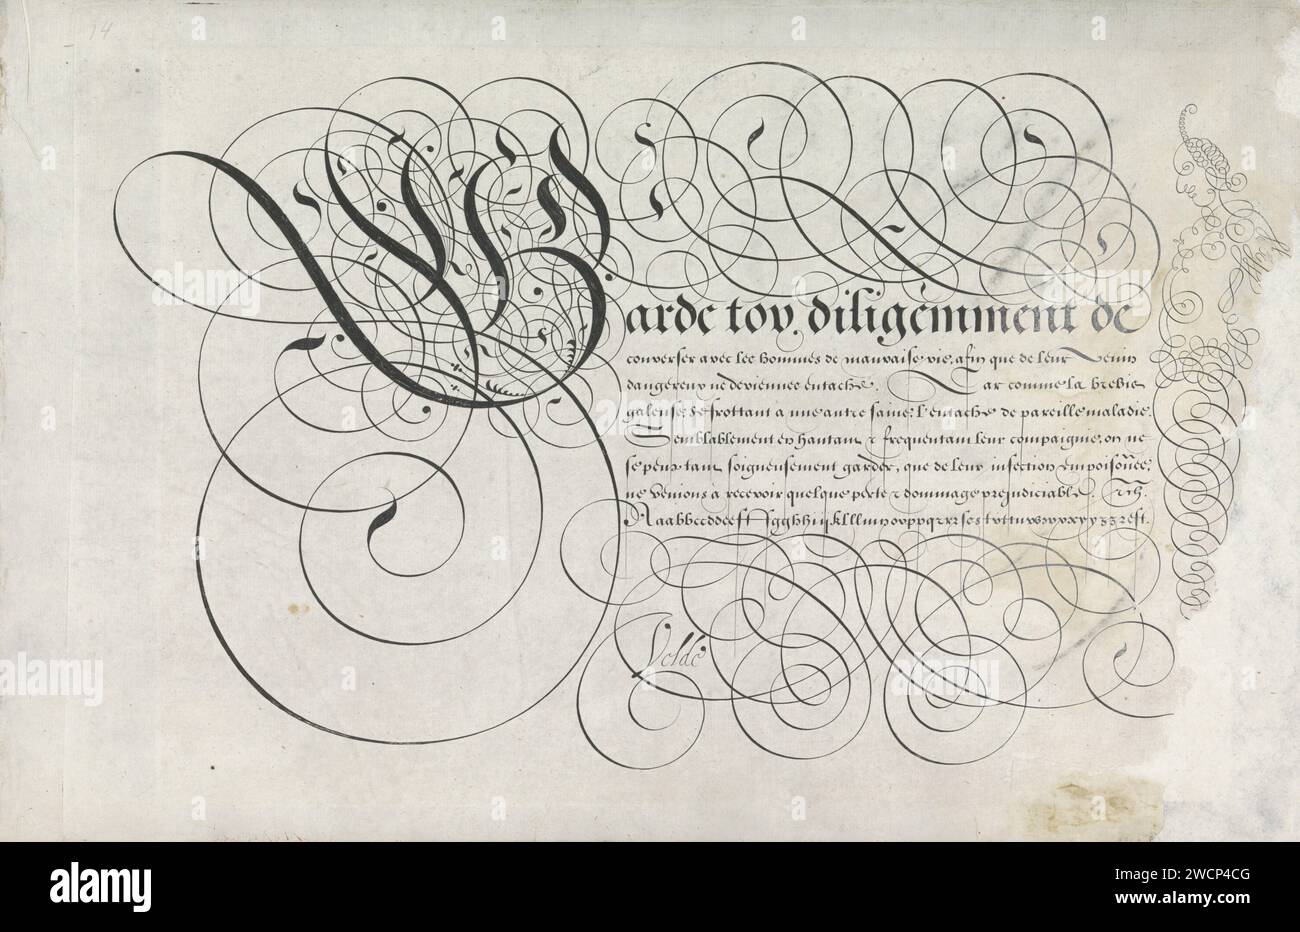 14
Garde toy diligēmment de
converser avec les hommes de mauvaise vie, afin que de leur venin
dangereux ne deviennes entaché. Car comme la brebis
galeuse, se frottant a une autre saine, l'entache de pareille maladie.
Semblablement en hantant & frequentant leur compaignie, on ne
se peux tant soigneusement garder, que de leur infection empoisonnée,
ne venions a recevoir quelque perte & dommage prejudiciable. Etc.
Aaabbccddeeff
Velde
alamy
Image ID: 2WCP4CG
www.alamy.com